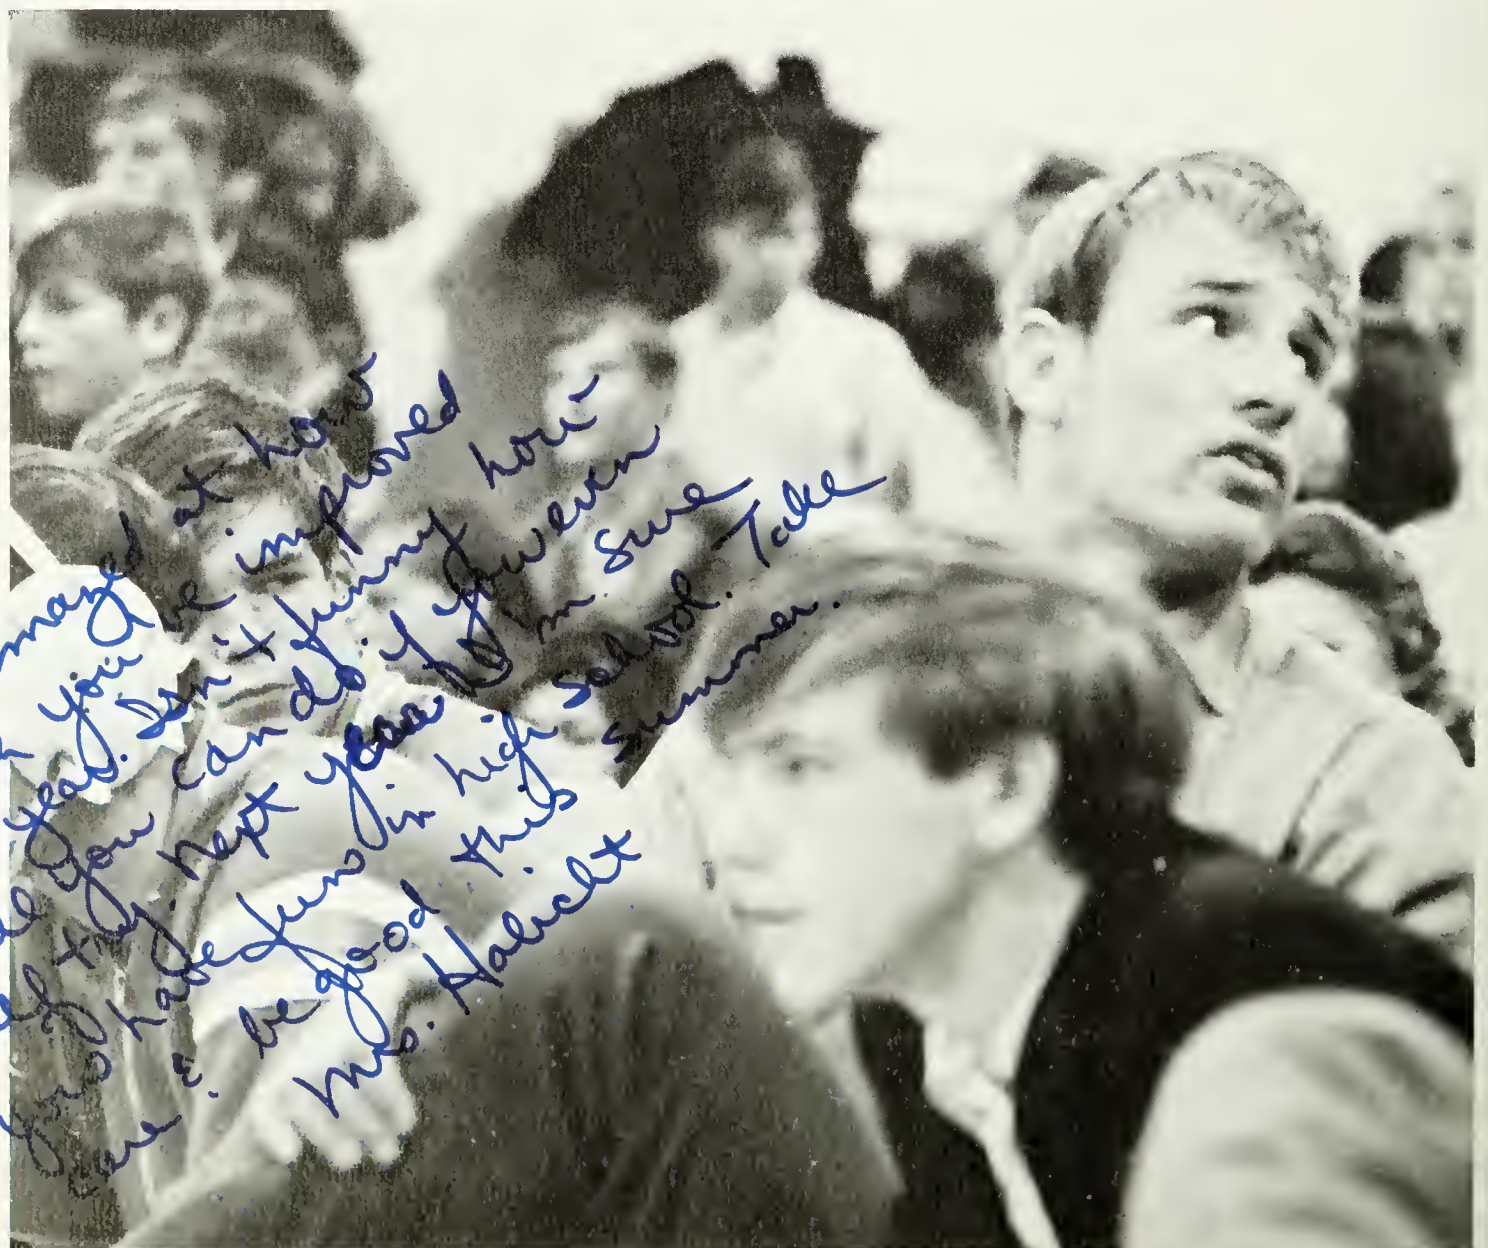 mazed at how
h you've improved
year. Isn't funny how
you can do if you even
try. Next year I'm sure
have fun in high school. Take
care & be good this summer.
Mrs. Habicht